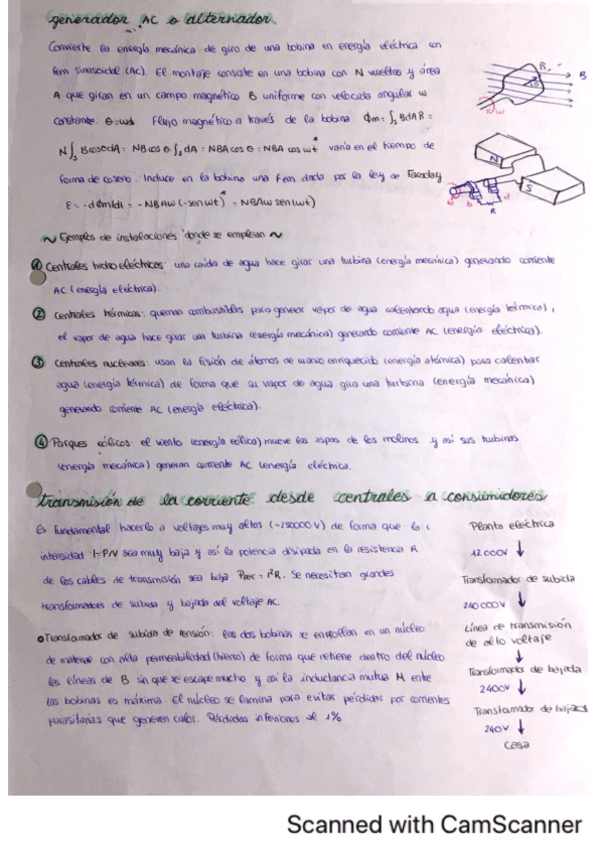 generador AC o alternador.
Convierte la energía mecánica de giro de una bobina en energía eléctrica con
fem sinusoidal (AC). El montaje consiste en una bobina con N vueltas y área
A que giran en un campo magnético B uniforme con velocidad angular ω
constante. θ=ωt Flujo magnético a través de la bobina Φm = ∫s BdA n̂ =
N∫s BcosθdA = NB cos θ ∫s dA = NBA cos θ = NBA cos ωt varía en el tiempo de
forma de coseno. Induce en la bobina una fem dada por la ley de Faraday
ε = -dΦm/dt = -NBAω (-senωt) = NBAω sen(ωt)
~ Ejemplos de instalaciones donde se emplean ~
① Centrales hidroeléctricas: una caída de agua hace girar una turbina (energía mecánica) generando corriente
AC (energía eléctrica).
② Centrales térmicas: queman combustibles para generar vapor de agua calentando agua (energía térmica),
el vapor de agua hace girar una turbina (energía mecánica) generando corriente AC (energía eléctrica).
③ Centrales nucleares: usan la fisión de átomos de uranio enriquecido (energía atómica) para calentar
agua (energía térmica) de forma que su vapor de agua gira una turbina (energía mecánica)
generando corriente AC (energía eléctrica).
④ Parques eólicos: el viento (energía eólica) mueve las aspas de los molinos y así sus turbinas
(energía mecánica) generan corriente AC (energía eléctrica.
transmisión de la corriente desde centrales a consumidores
Es fundamental hacerlo a voltajes muy altos (~250000 V) de forma que la
intensidad I=P/V sea muy baja y así la potencia disipada en la resistencia R
de los cables de transmisión sea baja = I²R. Se necesitan grandes
transformadores de subida y bajada del voltaje AC.
Transformador de subida de tensión: las dos bobinas se enrollan en un núcleo
de material con alta permeabilidad (hierro) de forma que retiene dentro del núcleo
las líneas de B sin que se escape mucho y así la inductancia mutua M entre
las bobinas es máxima. El núcleo se lamina para evitar pérdidas por corrientes
parasitarias que generen calor. Pérdidas inferiores al 1%
Planta eléctrica
12000V ↓
Transformador de subida
240000V ↓
Línea de transmisión
de alto voltaje
↓
Transformador de bajada
2400V ↓
Transformador de bajada
240V ↓
Casa
B
ω
N
S
R
Scanned with CamScanner